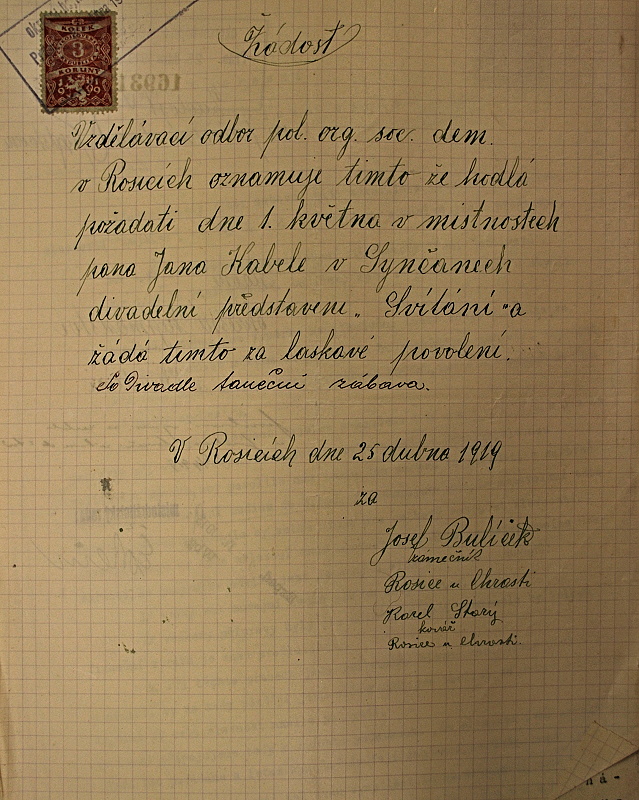 KOLEK
3
KORUNY
1919
Žádost
Vzdělávací odbor pol. org. soc. dem.
v Rosicích oznamuje timto že hodlá
požadati dne 1. května v mistnostech
pana Jana Kabele v Synčanech
divadelní představeni „Svítání" a
žádá timto za laskavé povolení.
Po Divadle taneční zábava.
V Rosicích dne 25 dubna 1919
za
Josef Bulíček
zámečník
Rosice u Chrasti
Karel Starý
kovář
Rosice u Chrasti.
ná-